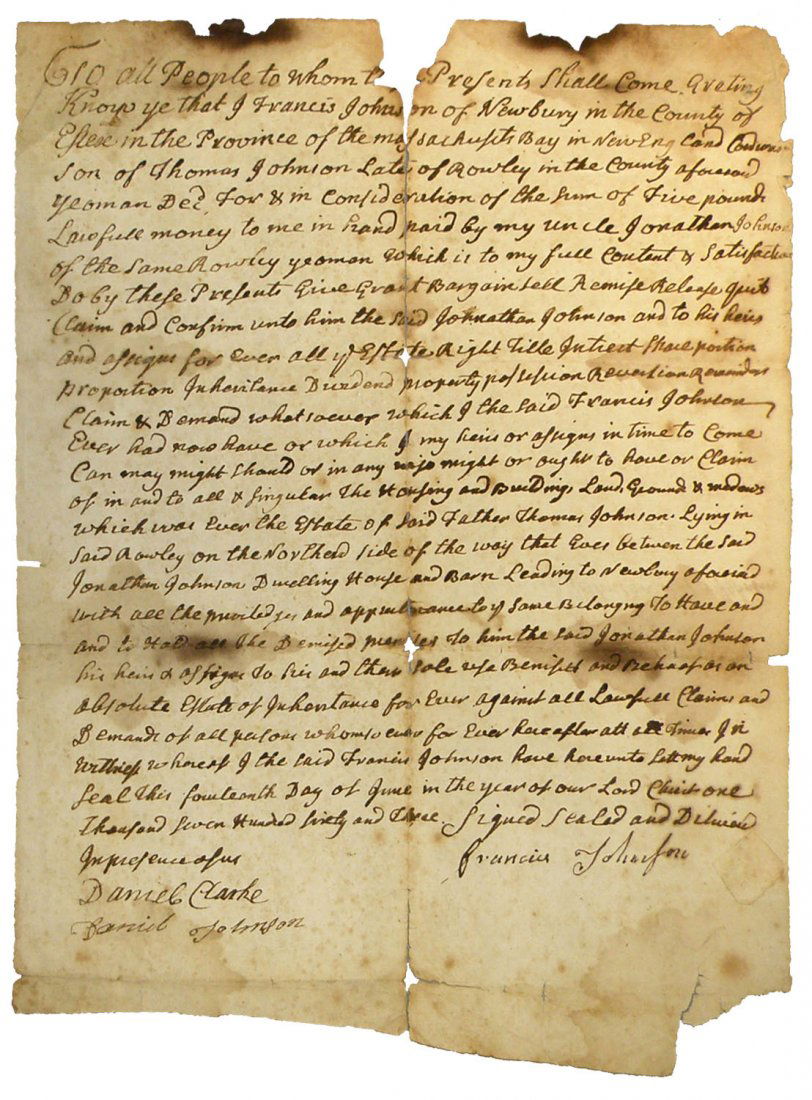 To all People to whom Presents Shall Come Greting
Know ye that I Francis Johnson of Newbury in the County of
Essex in the Province of the massachusits Bay in New England Cordwainer
son of Thomas Johnson Late of Rowley in the County aforesaid
yeoman Decd For & in Consideration of the Sum of Five pounds
Lawfull money to me in hand paid by my uncle Jonathan Johnson
of the Same Rowley yeoman which is to my full Content & Satisfaction
Do by these Presents Give Grant Bargain sell Remise Release quit
Claim and Confirm unto him the Said Johnathan Johnson and to his heirs
and assigns for Ever all ye Estate Right Title Intrest Share portion
proportion Inheritance Dividend property possession Reversion Remainder
Claim & Demand whatsoever which I the Said Francis Johnson
Ever had now have or which I my heirs or assigns in time to Come
Can may might Should or in any wise might or ought to have or Claim
of in and to all & Singular The Housing and Buildings Land Ground & medows
which was Ever the Estate of Said Father Thomas Johnson Lying in
Said Rowley on the Northerd side of the way that between the Said
Jonathan Johnson Dwelling House and Barn Leading to Newbury aforesaid
with all the priviledges and to ye Same Belongng To Have and
and to Hold all The Demised premises To him the said Jonathan Johnson
his heirs & assigns To his and their sole use Benifitt and Behoof as an
absolute Estate of Inheritance for Ever against all Lawfull Claims and
Demands of all persons whomsoever for Ever hereafter att all Times In
Wittness whereof I the said Francis Johnson have hereunto Sett my hand
Seal This fourteenth Day of June in the year of our Lord Christ one
Thousand Seven Hundred Sixty and Three Signed Sealed and Delivred
In presence of us
Francis Johnson
Daniel Clarke
Daniel Johnson